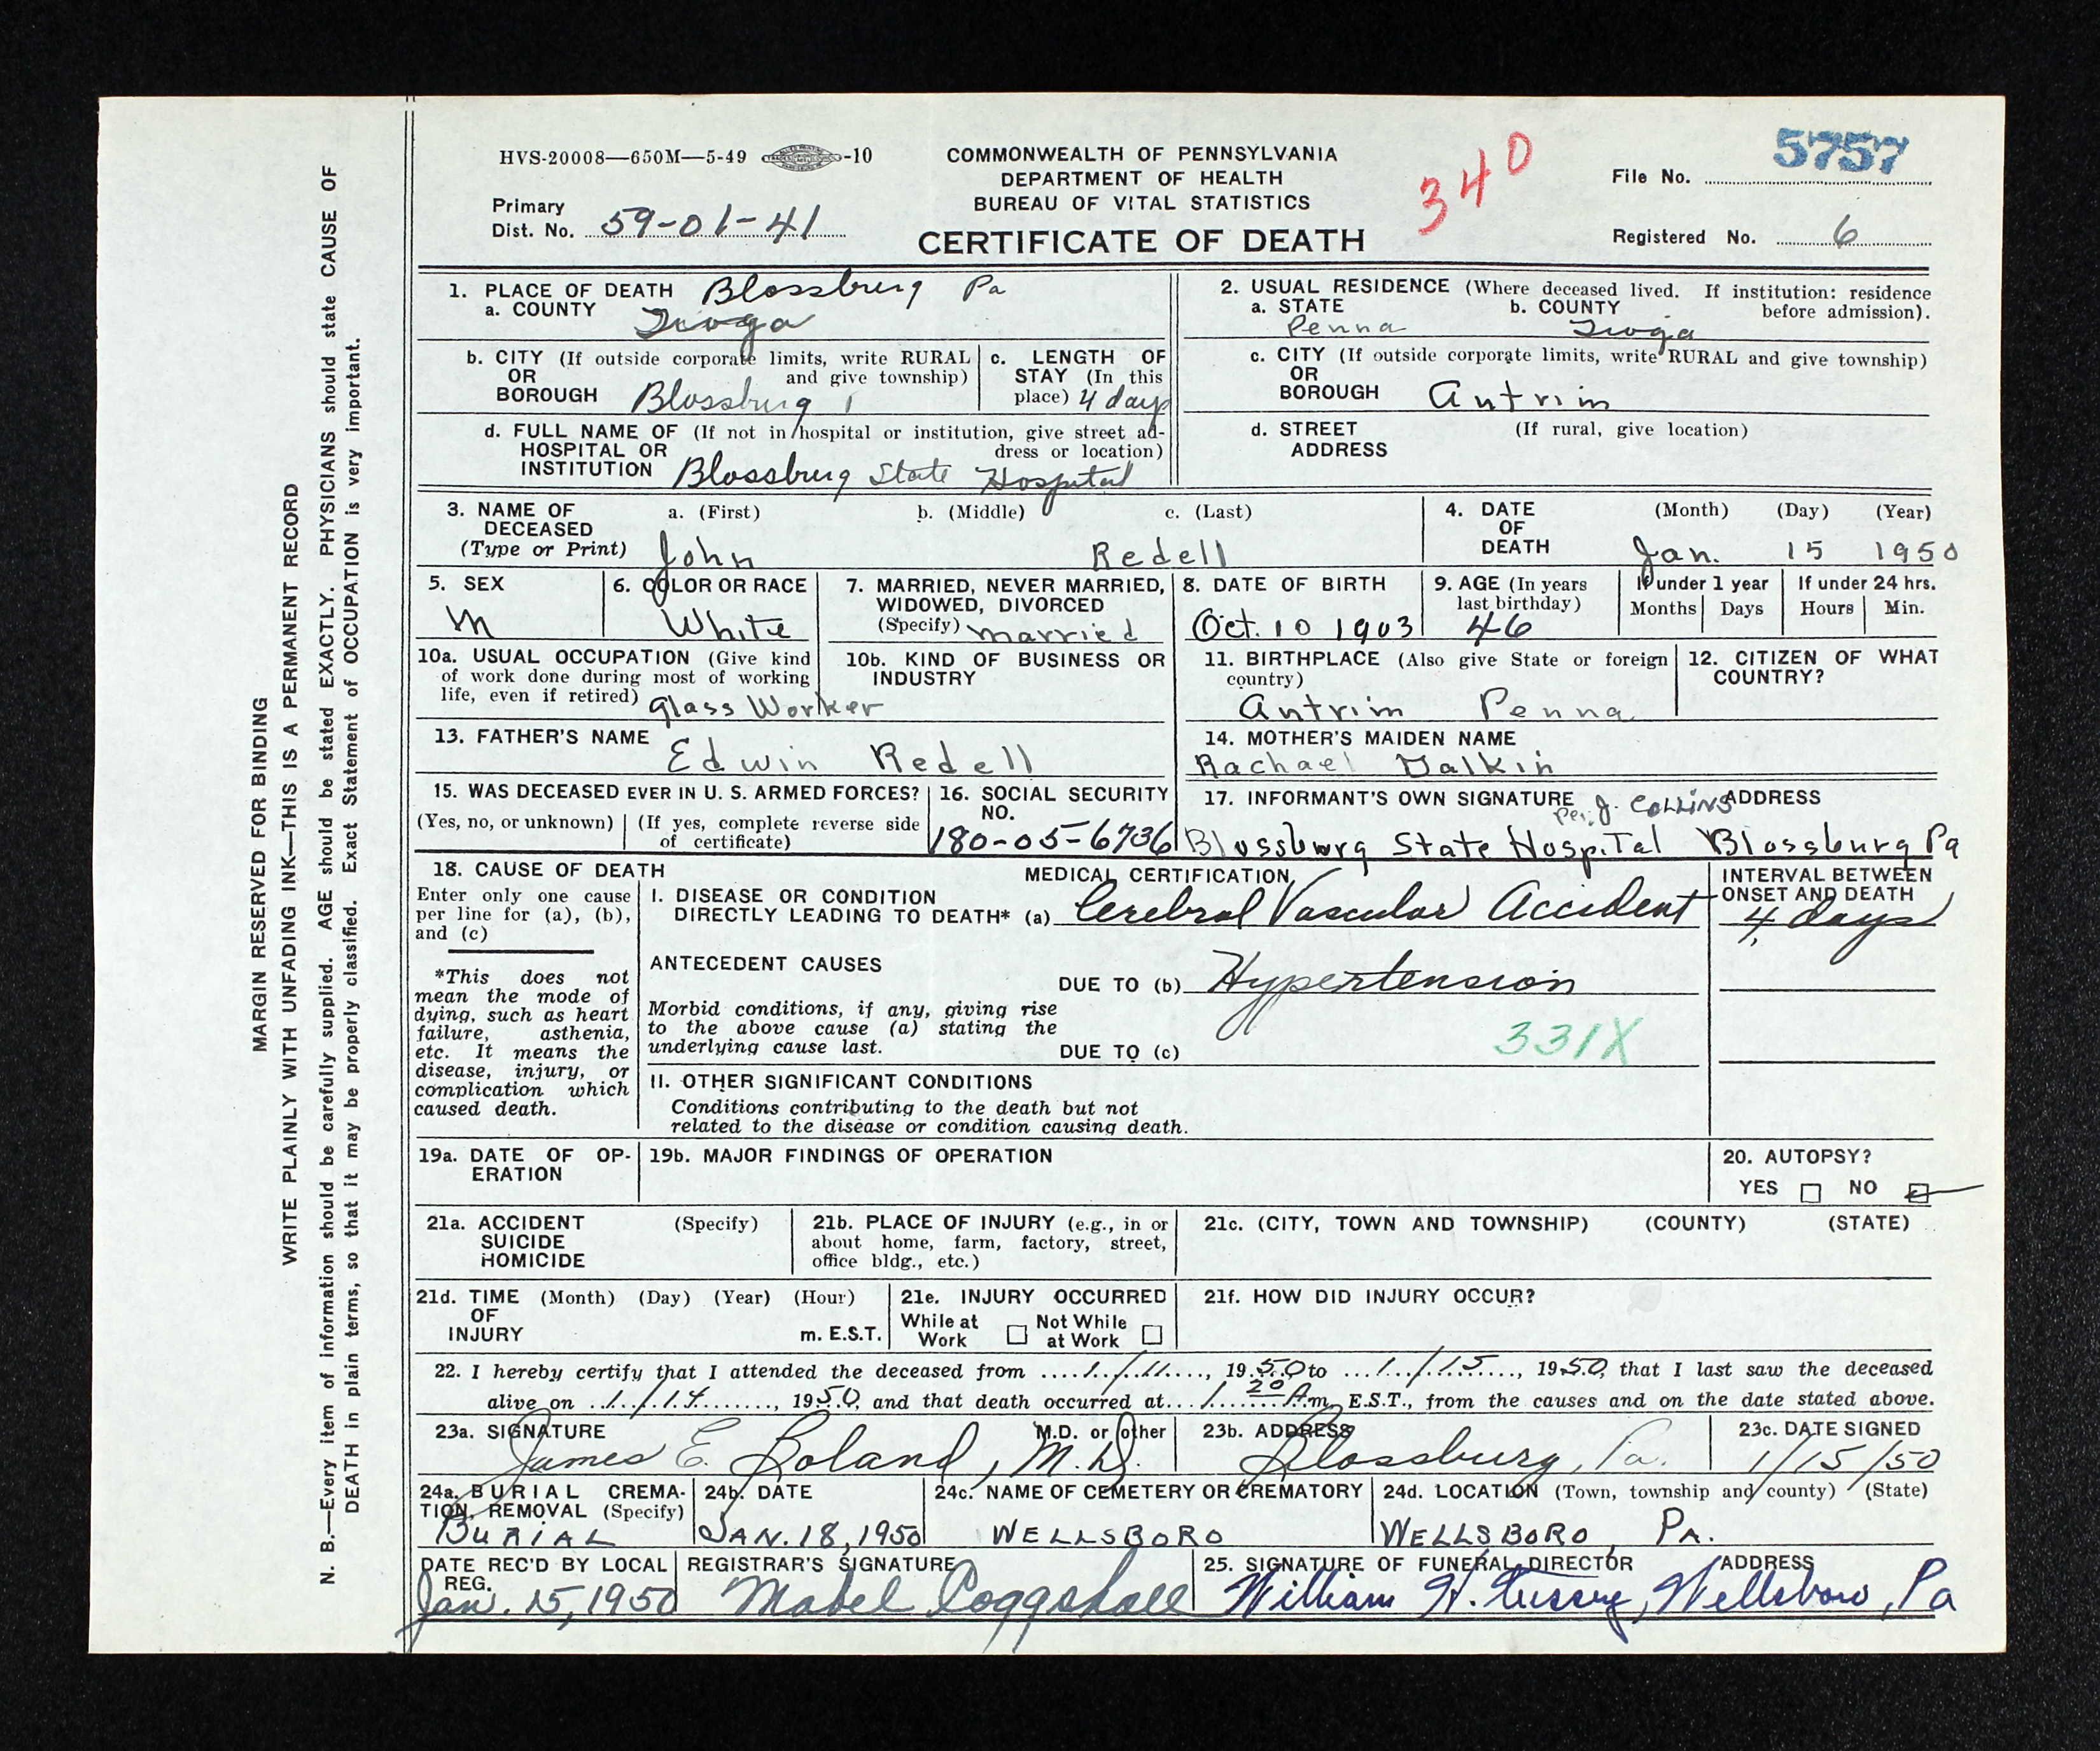 HVS-20008—650M—5-49 -10
COMMONWEALTH OF PENNSYLVANIA
DEPARTMENT OF HEALTH
BUREAU OF VITAL STATISTICS
CERTIFICATE OF DEATH
340
File No. 5757
Primary
Dist. No. 59-01-41
Registered No. 6
MARGIN RESERVED FOR BINDING
WRITE PLAINLY WITH UNFADING INK—THIS IS A PERMANENT RECORD
N. B.—Every item of information should be carefully supplied. AGE should be stated EXACTLY. PHYSICIANS should state CAUSE OF
DEATH in plain terms, so that it may be properly classified. Exact Statement of OCCUPATION is very important.
1. PLACE OF DEATH Blossburg Pa
a. COUNTY Tioga
2. USUAL RESIDENCE (Where deceased lived. If institution: residence
a. STATE b. COUNTY before admission).
Penna Tioga
b. CITY (If outside corporate limits, write RURAL
OR and give township)
BOROUGH Blossburg
c. LENGTH OF
STAY (In this
place) 4 days
c. CITY (If outside corporate limits, write RURAL and give township)
OR
BOROUGH Antrim
d. FULL NAME OF (If not in hospital or institution, give street ad-
HOSPITAL OR dress or location)
INSTITUTION Blossburg State Hospital
d. STREET (If rural, give location)
ADDRESS
3. NAME OF a. (First) b. (Middle) c. (Last)
DECEASED
(Type or Print) John Redell
4. DATE (Month) (Day) (Year)
OF
DEATH Jan. 15 1950
5. SEX
M
6. COLOR OR RACE
White
7. MARRIED, NEVER MARRIED,
WIDOWED, DIVORCED
(Specify) married
8. DATE OF BIRTH
Oct. 10 1903
9. AGE (In years
last birthday)
46
If under 1 year
Months Days
If under 24 hrs.
Hours Min.
10a. USUAL OCCUPATION (Give kind
of work done during most of working
life, even if retired) Glass Worker
10b. KIND OF BUSINESS OR
INDUSTRY
11. BIRTHPLACE (Also give State or foreign
country)
Antrim Penna
12. CITIZEN OF WHAT
COUNTRY?
13. FATHER'S NAME
Edwin Redell
14. MOTHER'S MAIDEN NAME
Rachael Dalkin
15. WAS DECEASED EVER IN U. S. ARMED FORCES?
(Yes, no, or unknown) (If yes, complete reverse side
of certificate)
16. SOCIAL SECURITY
NO.
180-05-6736
17. INFORMANT'S OWN SIGNATURE Per. J. COLLINS ADDRESS
Blossburg State Hospital Blossburg Pa
18. CAUSE OF DEATH
Enter only one cause
per line for (a), (b),
and (c)
*This does not
mean the mode of
dying, such as heart
failure, asthenia,
etc. It means the
disease, injury, or
complication which
caused death.
MEDICAL CERTIFICATION
I. DISEASE OR CONDITION
DIRECTLY LEADING TO DEATH* (a) Cerebral Vascular Accident
INTERVAL BETWEEN
ONSET AND DEATH
4 days
ANTECEDENT CAUSES
DUE TO (b) Hypertension
Morbid conditions, if any, giving rise
to the above cause (a) stating the
underlying cause last.
DUE TO (c)
331X
II. OTHER SIGNIFICANT CONDITIONS
Conditions contributing to the death but not
related to the disease or condition causing death.
19a. DATE OF OP-
ERATION
19b. MAJOR FINDINGS OF OPERATION
20. AUTOPSY?
YES NO
21a. ACCIDENT (Specify)
SUICIDE
HOMICIDE
21b. PLACE OF INJURY (e.g., in or
about home, farm, factory, street,
office bldg., etc.)
21c. (CITY, TOWN AND TOWNSHIP) (COUNTY) (STATE)
21d. TIME (Month) (Day) (Year) (Hour)
OF
INJURY m. E.S.T.
21e. INJURY OCCURRED
While at Not While
Work at Work
21f. HOW DID INJURY OCCUR?
22. I hereby certify that I attended the deceased from 1/11, 1950 to 1/15, 1950, that I last saw the deceased
alive on 1/14, 1950, and that death occurred at 1 20 A m. E.S.T., from the causes and on the date stated above.
23a. SIGNATURE M.D. or other
James E. Boland, M.D.
23b. ADDRESS
Blossburg, Pa.
23c. DATE SIGNED
1/15/50
24a. BURIAL CREMA-
TION, REMOVAL (Specify)
BURIAL
24b. DATE
JAN. 18, 1950
24c. NAME OF CEMETERY OR CREMATORY
WELLSBORO
24d. LOCATION (Town, township and county) (State)
WELLSBORO, PA.
DATE REC'D BY LOCAL
REG.
Jan. 15, 1950
REGISTRAR'S SIGNATURE
Mabel Coggshall
25. SIGNATURE OF FUNERAL DIRECTOR ADDRESS
William H. Tussey, Wellsboro, Pa